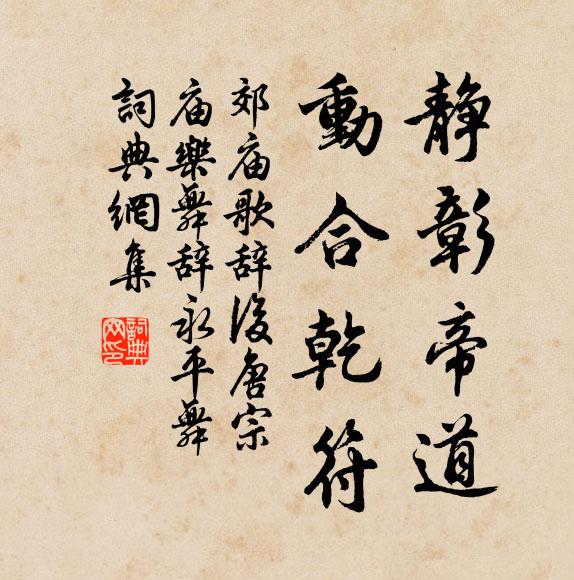 静彰帝道
動合乾符
郊庙歌辞後唐宗
庙樂舞辞永平舞
詞典網集
詞典网印